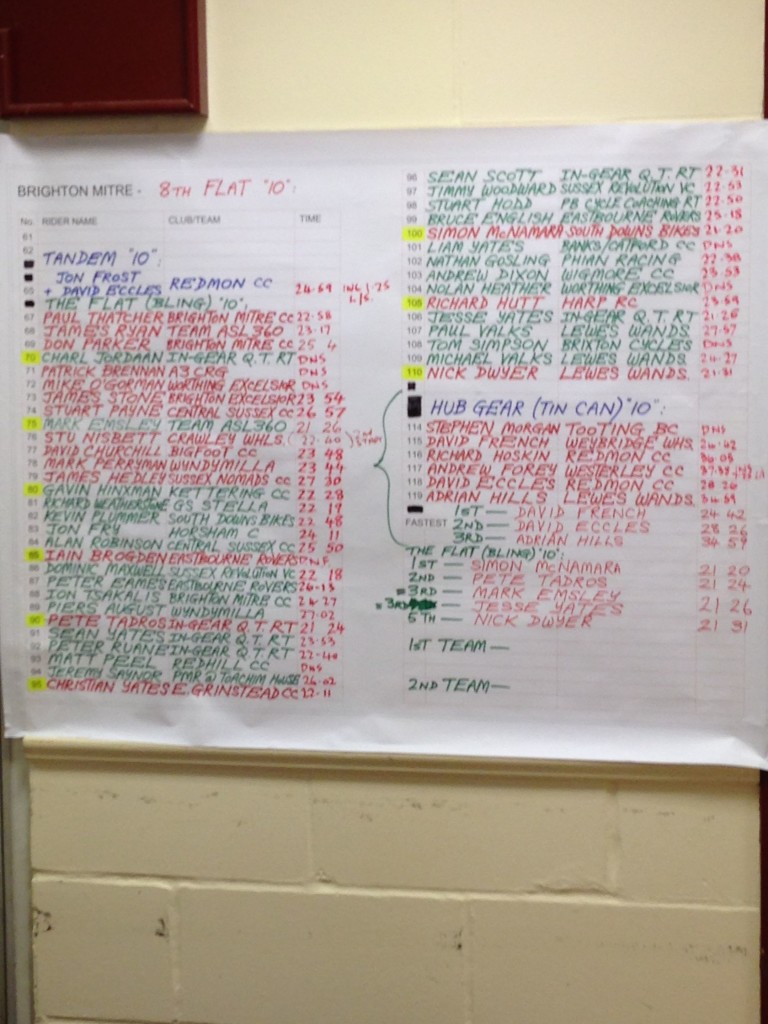 BRIGHTON MITRE - 8TH FLAT "10":
No. RIDER NAME CLUB/TEAM TIME
61
62
TANDEM "10":
JON FROST
65 + DAVID ECCLES REDMON CC 24-59 INC 1-25 L/S.
THE FLAT (BLING) "10":
67 PAUL THATCHER BRIGHTON MITRE CC 22-58
68 JAMES RYAN TEAM ASL360 23-17
69 DON PARKER BRIGHTON MITRE CC 25 4
70 CHARL JORDAAN IN-GEAR Q.T. RT DNS
71 PATRICK BRENNAN A3 CRG DNS
72 MIKE O'GORMAN WORTHING EXCELSIOR DNS
73 JAMES STONE BRIGHTON EXCELSIOR 23 54
74 STUART PAYNE CENTRAL SUSSEX CC 26 57
75 MARK EMSLEY TEAM ASL360 21 26
76 STU NISBETT CRAWLEY WHLS.
77 DAVID CHURCHILL BIGFOOT CC 23 48
78 MARK PERRYMAN WYNDYMILLA 23 44
79 JAMES HEDLEY SUSSEX NOMADS CC 27 30
80 GAVIN HINXMAN KETTERING CC 22 28
81 RICHARD WEATHERSTONE GS STELLA 22 19
82 KEVIN PLUMMER SOUTH DOWNS BIKES 22 48
83 JON FRY HORSHAM C 24 11
84 ALAN ROBINSON CENTRAL SUSSEX CC 25 50
85 IAIN BROGDEN EASTBOURNE ROVERS DNF
86 DOMINIC MAXWELL SUSSEX REVOLUTION VC 22 18
87 PETER EAMES EASTBOURNE ROVERS 26-13
88 ION TSAKALIS BRIGHTON MITRE CC 24-27
89 PIERS AUGUST WYNDYMILLA 27-02
90 PETE TADROS IN-GEAR Q.T. RT 21 24
91 SEAN YATES IN-GEAR Q.T. RT 23-53
92 PETER RUANE IN-GEAR Q.T. RT 22-40
93 MATT PEEL REDHILL CC DNS
94 JEREMY SAYNOR PMR @ TOACHIM HOUSE 26-02
95 CHRISTIAN YATES E. GRINSTEAD CC 22-11
96 SEAN SCOTT IN-GEAR Q.T. RT 22-31
97 JIMMY WOODWARD SUSSEX REVOLUTION VC 22-53
98 STUART HODD PB CYCLE COACHING RT 22-50
99 BRUCE ENGLISH EASTBOURNE ROVERS 25-18
100 SIMON McNAMARA SOUTH DOWNS BIKES 21-20
101 LIAM YATES BANKS/CATFORD CC DNS
102 NATHAN GOSLING PHIAN RACING 22-38
103 ANDREW DIXON WIGMORE CC 23-53
104 NOLAN HEATHER WORTHING EXCELSIOR DNS
105 RICHARD HUTT HARP RC 23-59
106 JESSE YATES IN-GEAR Q.T. RT 21-26
107 PAUL VALKS LEWES WANDS 27-57
108 TOM SIMPSON BRIXTON CYCLES DNS
109 MICHAEL VALKS LEWES WANDS 24-27
110 NICK DWYER LEWES WANDS. 21-31
HUB GEAR (TIN CAN) "10":
114 STEPHEN MORGAN TOOTING BC DNS
115 DAVID FRENCH WEYBRIDGE WHS. 24-42
116 RICHARD HOSKIN REDMON CC 36-08
117 ANDREW FOREY WESTERLEY CC
118 DAVID ECCLES REDMON CC 28-26
119 ADRIAN HILLS LEWES WANDS. 34-59
1ST — DAVID FRENCH 24 42
FASTEST 2ND — DAVID ECCLES 28 26
3RD — ADRIAN HILLS 34 57
THE FLAT (BLING) "10":
1ST — SIMON McNAMARA 21 20
2ND — PETE TADROS 21 24
=3RD — MARK EMSLEY
=3RD — JESSE YATES 21 26
5TH — NICK DWYER 21 31
1ST TEAM —
2ND TEAM —